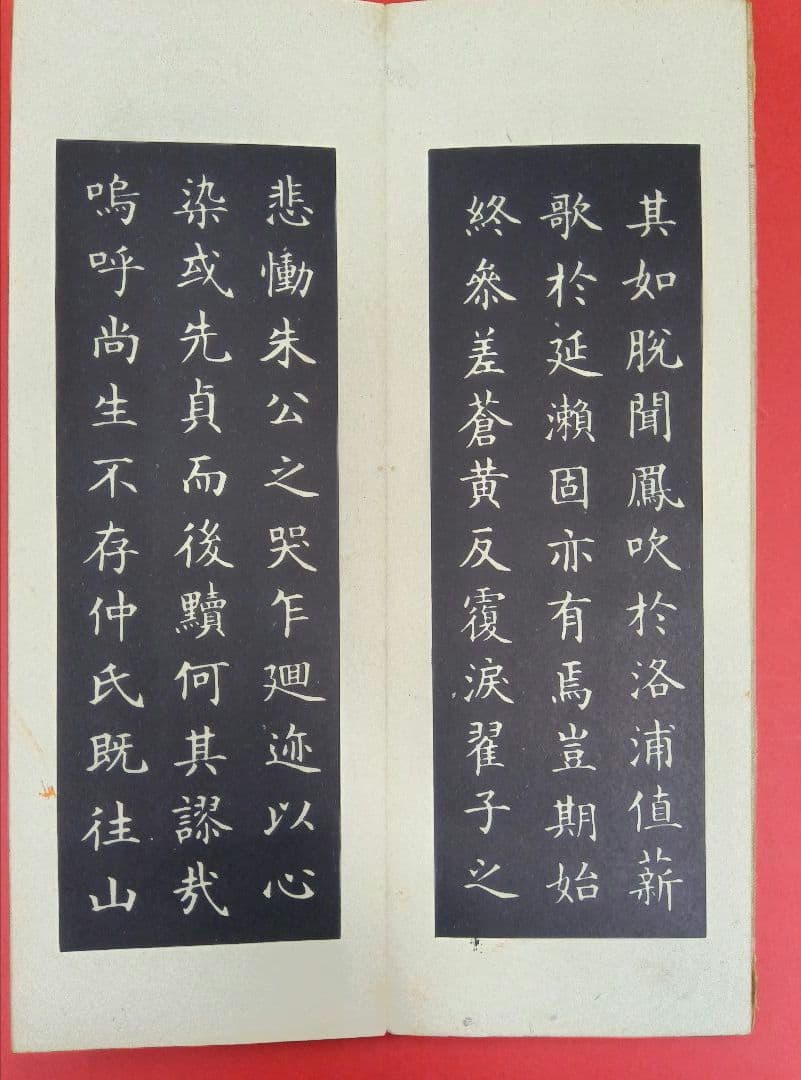 其如脫聞鳳吹於洛浦值薪
歌於延瀨固亦有焉豈期始
終叅差蒼黃反覆淚翟子之
悲慟朱公之哭乍迴迹以心
染或先貞而後黷何其謬哉
嗚呼尚生不存仲氏既往山